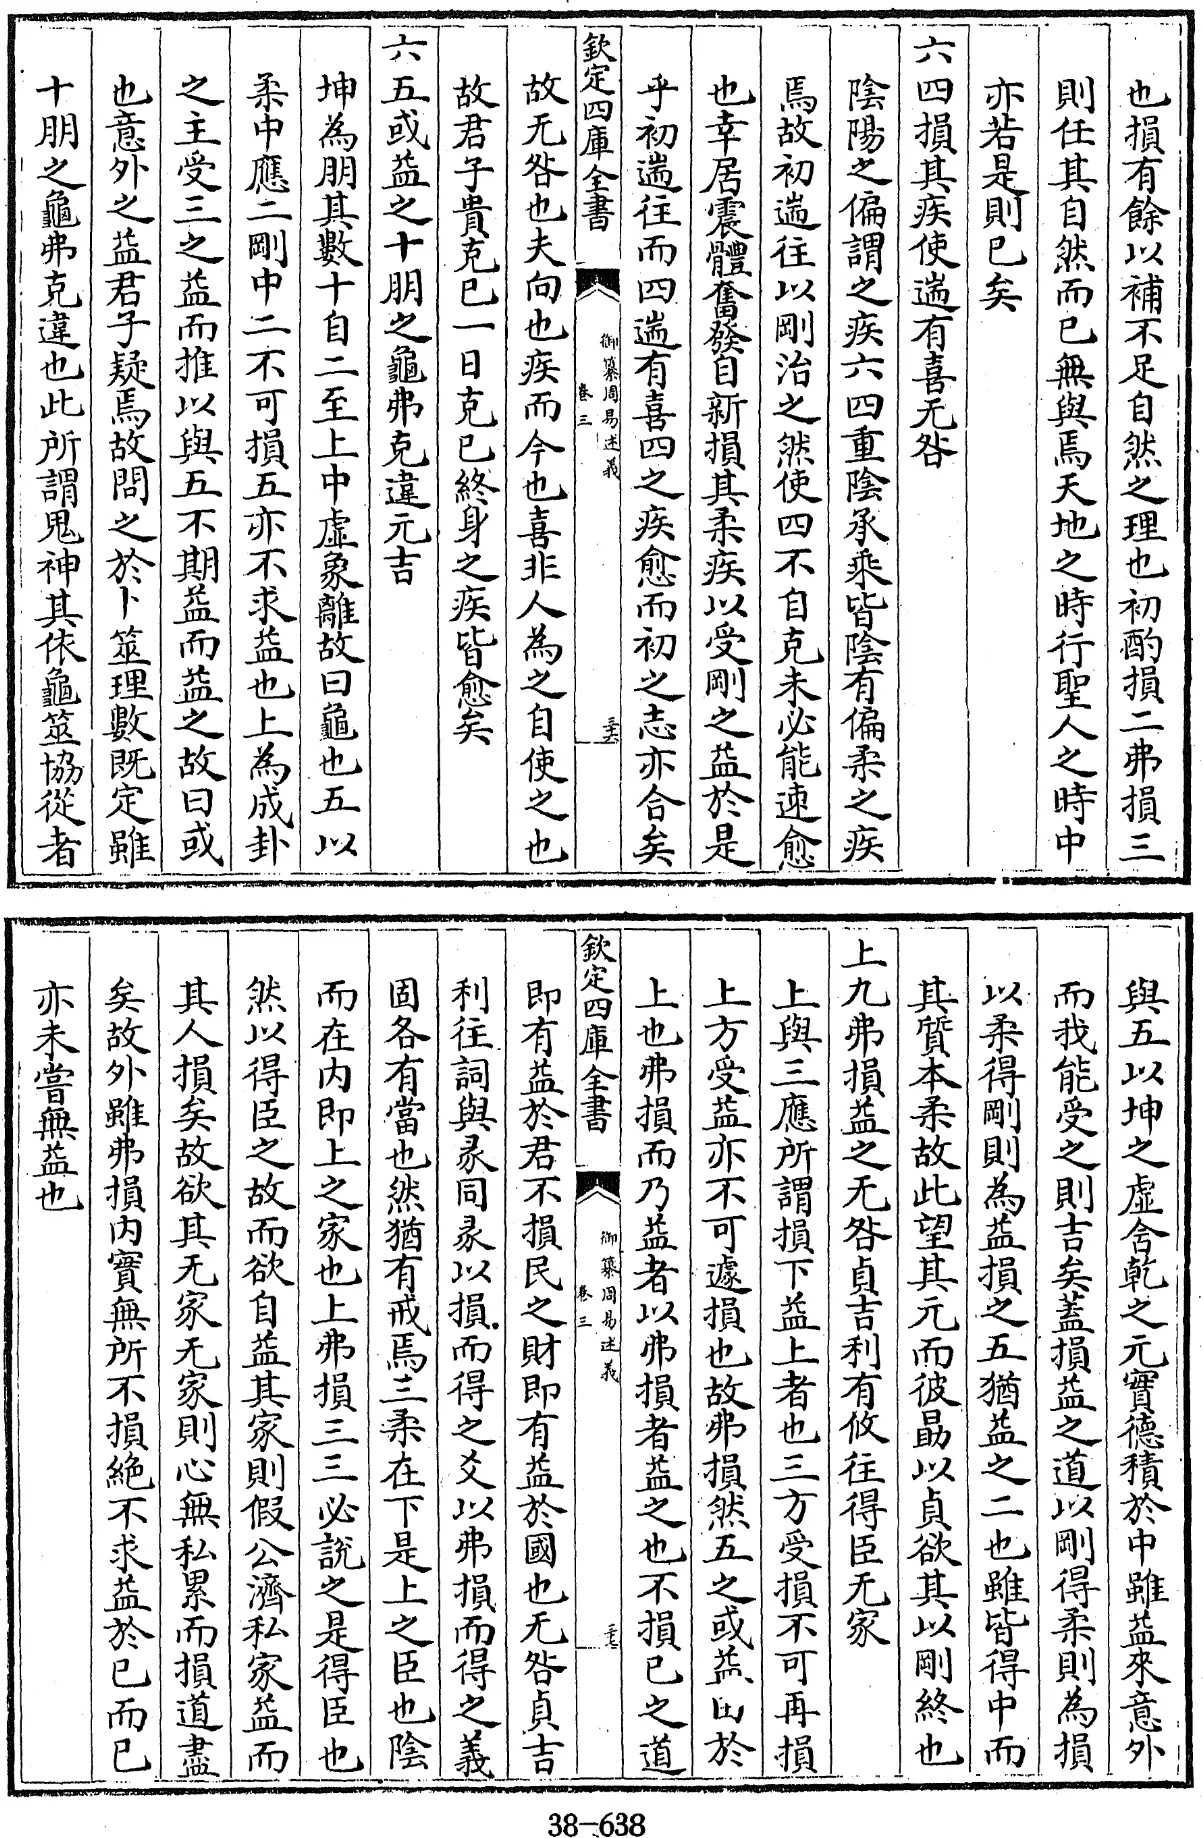 也損有餘以補不足自然之理也初酌損二弗損三
則任其自然而已無與焉天地之時行聖人之時中
亦若是則已矣
六四損其疾使遄有喜无咎
陰陽之偏謂之疾六四重陰承乘皆陰有偏柔之疾
焉故初遄往以剛治之然使四不自克未必能速愈
也幸居震體奮發自新損其柔疾以受剛之益於是
乎初遄往而四遄有喜四之疾愈而初之志亦合矣
欽定四庫全書
御纂周易述義
卷三
三十六
故无咎也夫向也疾而今也喜非人為之自使之也
故君子貴克己一日克己終身之疾皆愈矣
六五或益之十朋之龜弗克違元吉
坤為朋其數十自二至上中虛象離故曰龜也五以
柔中應二剛中二不可損五亦不求益也上為成卦
之主受三之益而推以與五不期益而益之故曰或
也意外之益君子疑焉故問之於卜筮理數既定雖
十朋之龜弗克違也此所謂鬼神其依龜筮協從者
與五以坤之虛含乾之元實德積於中雖益來意外
而我能受之則吉矣蓋損益之道以剛得柔則為損
以柔得剛則為益損之五猶益之二也雖皆得中而
其質本柔故此望其元而彼勗以貞欲其以剛終也
上九弗損益之无咎貞吉利有攸往得臣无家
上與三應所謂損下益上者也三方受損不可再損
上方受益亦不可遽損也故弗損然五之或益出於
上也弗損而乃益者以弗損者益之也不損己之道
欽定四庫全書
御纂周易述義
卷三
三十七
即有益於君不損民之財即有益於國也无咎貞吉
利往詞與彖同彖以損而得之爻以弗損而得之義
固各有當也然猶有戒焉三柔在下是上之臣也陰
而在内即上之家也上弗損三三必說之是得臣也
然以得臣之故而欲自益其家則假公濟私家益而
其人損矣故欲其无家无家則心無私累而損道盡
矣故外雖弗損内實無所不損絶不求益於己而已
亦未嘗無益也
38-638